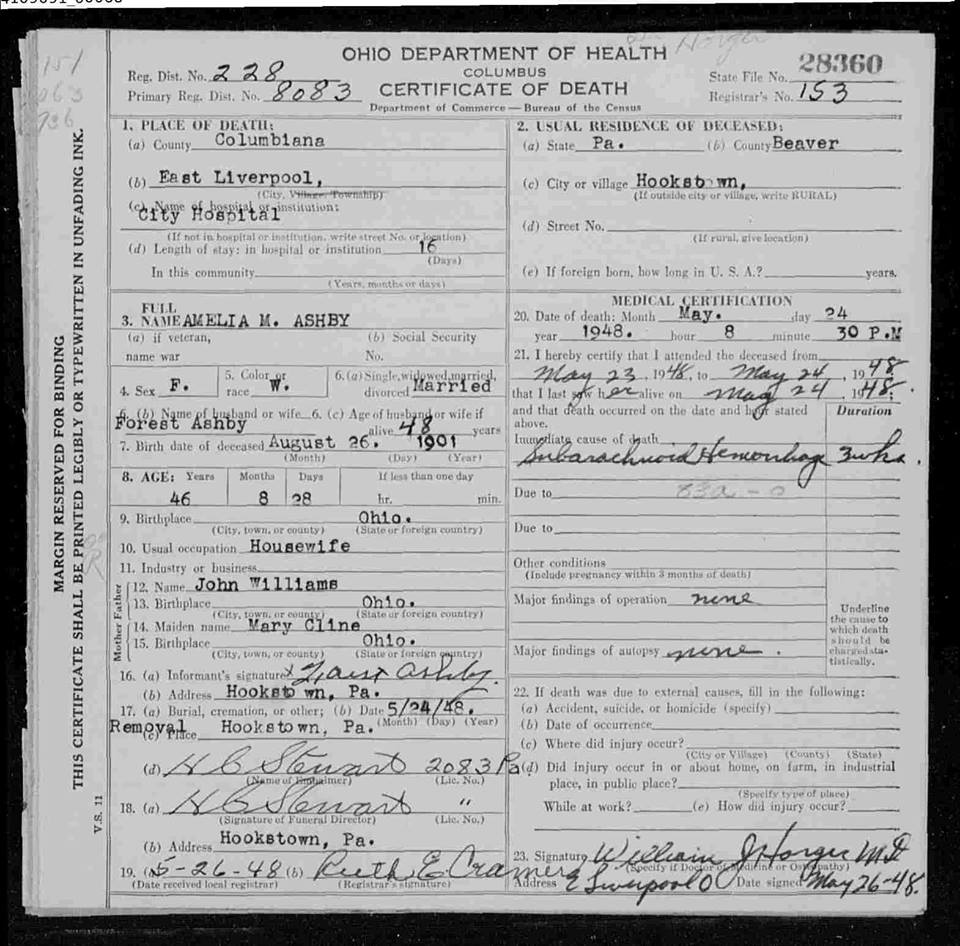 OHIO DEPARTMENT OF HEALTH
COLUMBUS
CERTIFICATE OF DEATH
Department of Commerce — Bureau of the Census
Reg. Dist. No. 228
Primary Reg. Dist. No. 8083
State File No. 28360
Registrar's No. 153
MARGIN RESERVED FOR BINDING
THIS CERTIFICATE SHALL BE PRINTED LEGIBLY OR TYPEWRITTEN IN UNFADING INK.
V.S. 11
1. PLACE OF DEATH:
(a) County Columbiana
(b) East Liverpool,
(City, Village, Township)
(c) Name of hospital or institution:
City Hospital
(If not in hospital or institution, write street No. or location)
(d) Length of stay: in hospital or institution 16
(Days)
In this community
(Years, months or days)
2. USUAL RESIDENCE OF DECEASED:
(a) State Pa. (b) County Beaver
(c) City or village Hookstown,
(If outside city or village, write RURAL)
(d) Street No.
(If rural, give location)
(e) If foreign born, how long in U. S. A.? years.
3. FULL NAME AMELIA M. ASHBY
(a) if veteran, name war
(b) Social Security No.
4. Sex F.
5. Color or race W.
6. (a) Single, widowed, married, divorced Married
6. (b) Name of husband or wife
Forest Ashby
6. (c) Age of husband or wife if alive 48 years
7. Birth date of deceased August 26. 1901
(Month) (Day) (Year)
8. AGE: Years Months Days If less than one day
46 8 28 hr. min.
9. Birthplace Ohio.
(City, town, or county) (State or foreign country)
10. Usual occupation Housewife
11. Industry or business
Father
12. Name John Williams
13. Birthplace Ohio.
(City, town, or county) (State or foreign country)
Mother
14. Maiden name Mary Cline
15. Birthplace Ohio.
(City, town, or county) (State or foreign country)
16. (a) Informant's signature x Ashby.
(b) Address Hookstown, Pa.
17. (a) Burial, cremation, or other; (b) Date 5/24/48.
Removal (Month) (Day) (Year)
(c) Place Hookstown, Pa.
(d) H C Stewart 2083 Pa
(Name of Embalmer) (Lic. No.)
18. (a) H C Stewart "
(Signature of Funeral Director) (Lic. No.)
(b) Address Hookstown, Pa.
19. (a) 5-26-48 (b) Ruth E. Cramer
(Date received local registrar) (Registrar's signature)
MEDICAL CERTIFICATION
20. Date of death: Month May. day 24
year 1948. hour 8 minute 30 P.M
21. I hereby certify that I attended the deceased from
May 23, 1948, to May 24, 1948
that I last saw her alive on May 24, 1948;
and that death occurred on the date and hour stated above.
Duration
Immediate cause of death
Subarachnoid Hemorrhage 3 wks.
Due to 83a - 0
Due to
Other conditions
(Include pregnancy within 3 months of death)
Major findings of operation none
Major findings of autopsy none.
Underline the cause to which death should be charged statistically.
22. If death was due to external causes, fill in the following:
(a) Accident, suicide, or homicide (specify)
(b) Date of occurrence
(c) Where did injury occur?
(City or Village) (County) (State)
(d) Did injury occur in or about home, on farm, in industrial
place, in public place?
(Specify type of place)
While at work? (e) How did injury occur?
23. Signature William J Horger M.D.
(Specify if Doctor of Medicine or Osteopathy)
Address E Liverpool O Date signed May 26-48.